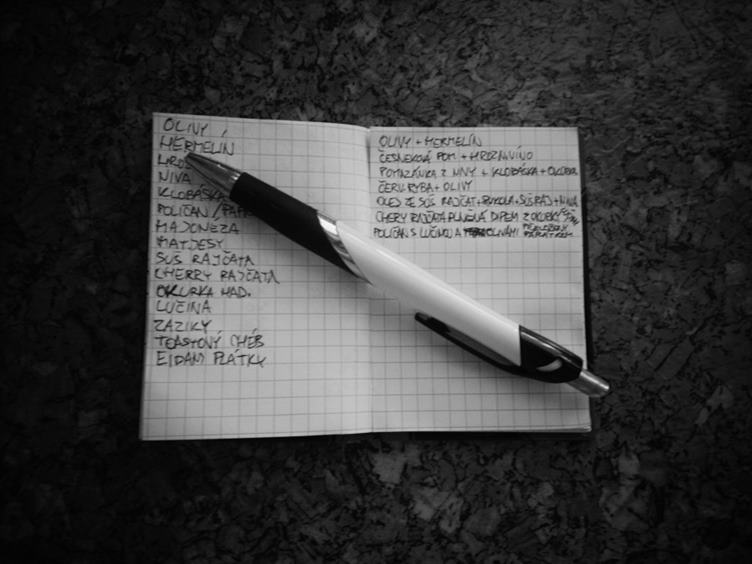 OLIVY
HERMELÍN
NIVA
KLOBÁSKA
POLIČAN /
MAJONÉZA
MATJESY
SUŠ RAJČATA
CHERRY RAJČATA
OKURKA HAD.
LUČINA
ZAZIKY
TOASTOVÝ CHÉB
EIDAM PLÁTKY
OLIVY + HERMELÍN
ČESNEKOVÁ POM. + HROZN.VÍNO
POMAZÁNKA Z NIVY + KLOBÁSKA + OKURKA
ČERV. RYBA + OLIVY
OLEJ ZE SUŠ RAJČAT + RUKOLA + SUŠ RAJ + NIVA
CHERY RAJČATA PLNĚNÁ DIPEM Z OKURKY
POLIČAN S LUČINOU A OLIVAMI